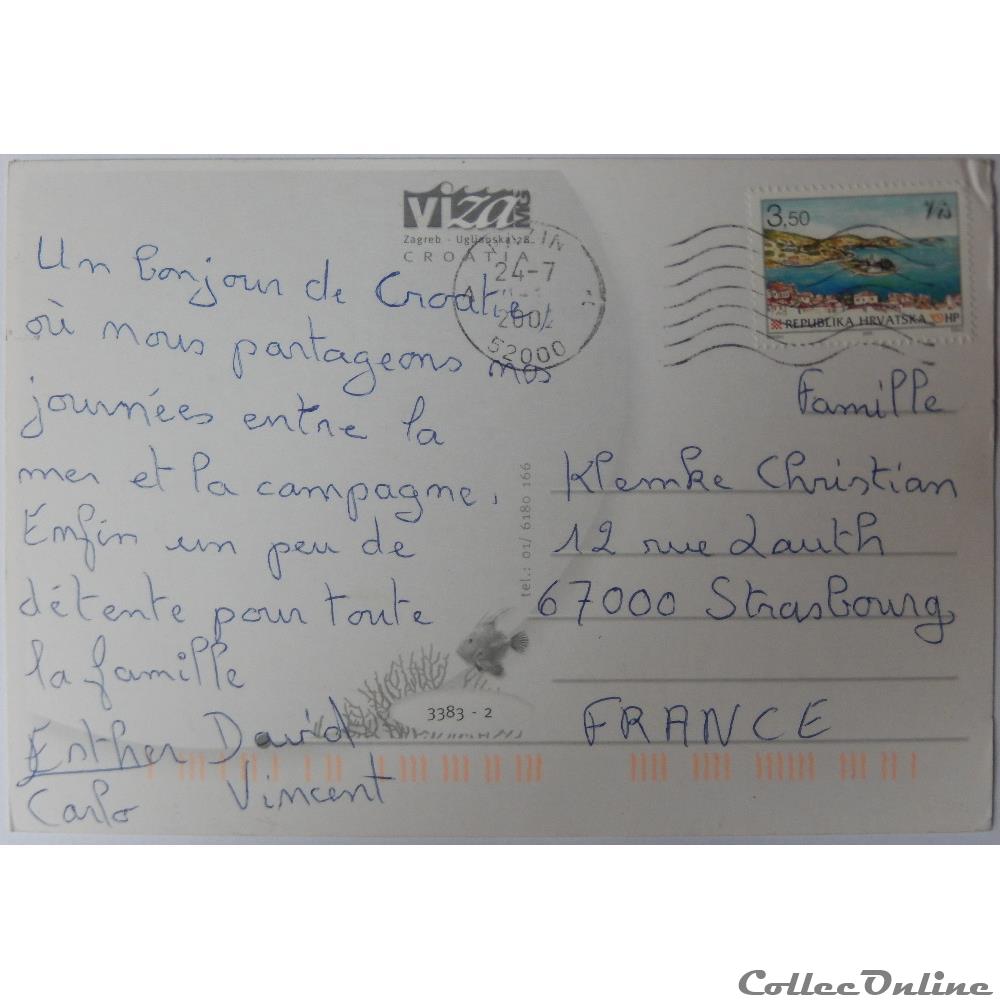 viza MG
Zagreb - Uglianska 28
CROATIA
Un bonjour de Croatie,
où nous partageons nos
journées entre la
mer et la campagne.
Enfin un peu de
détente pour toute
la famille
Esther David
Carlo Vincent
24-7
52000
3,50 Vis
REPUBLIKA HRVATSKA HP
tel.: 01/ 6180 166
3383 - 2
Famille
Klemke Christian
12 rue Lauth
67000 Strasbourg
FRANCE
CollecOnline